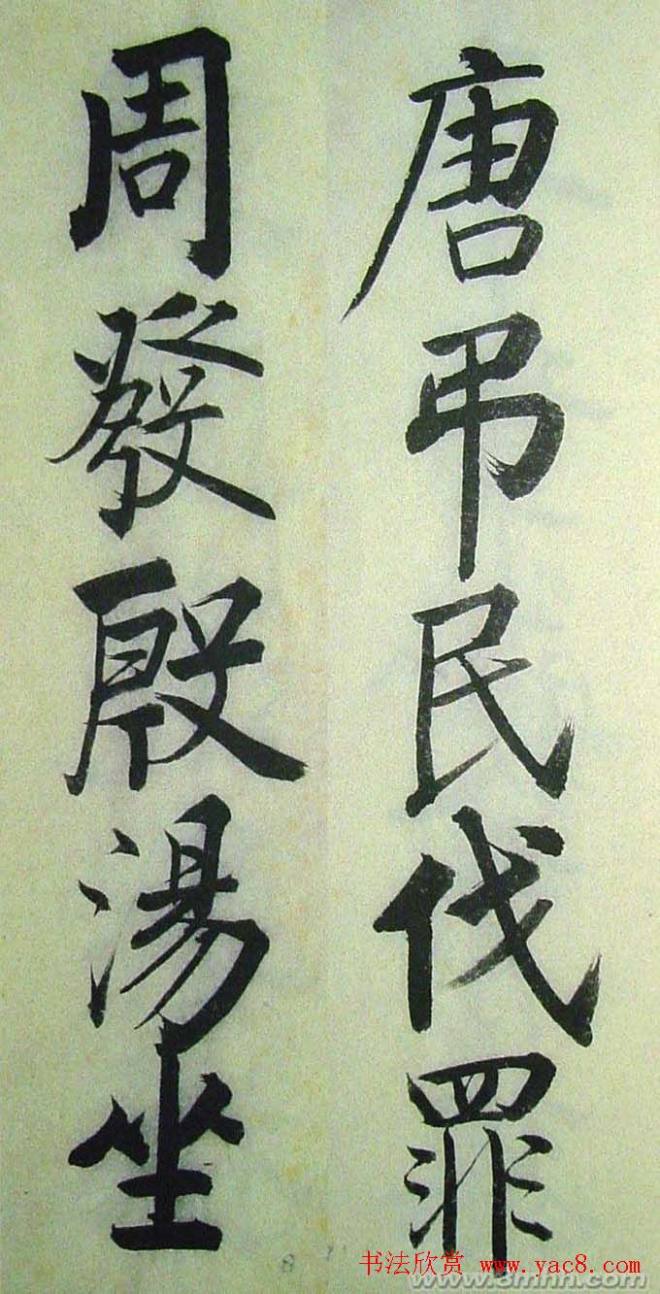 唐弔民伐罪
周發殷湯坐
书法欣赏 www.yac8.com